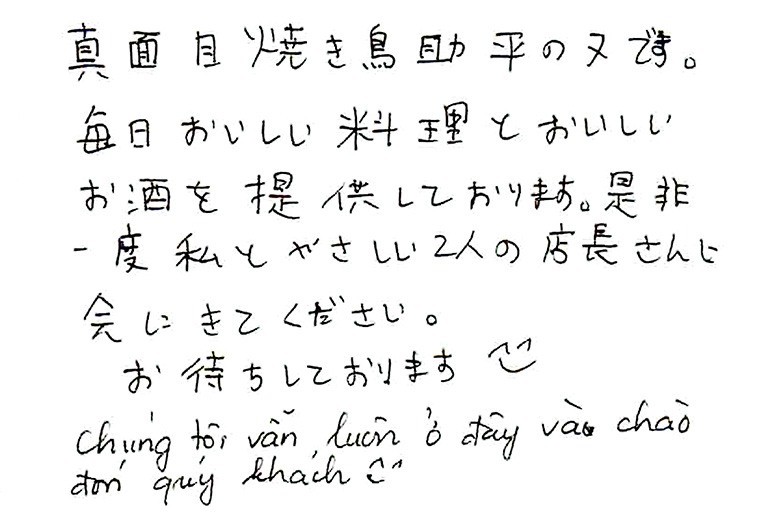 真面目焼き鳥助平のヌです。
毎日おいしい料理とおいしい
お酒を提供しております。是非
一度私とやさしい2人の店長さんに
会にきてください。
お待ちしております
chúng tôi vẫn luôn ở đây và chào
đón quý khách